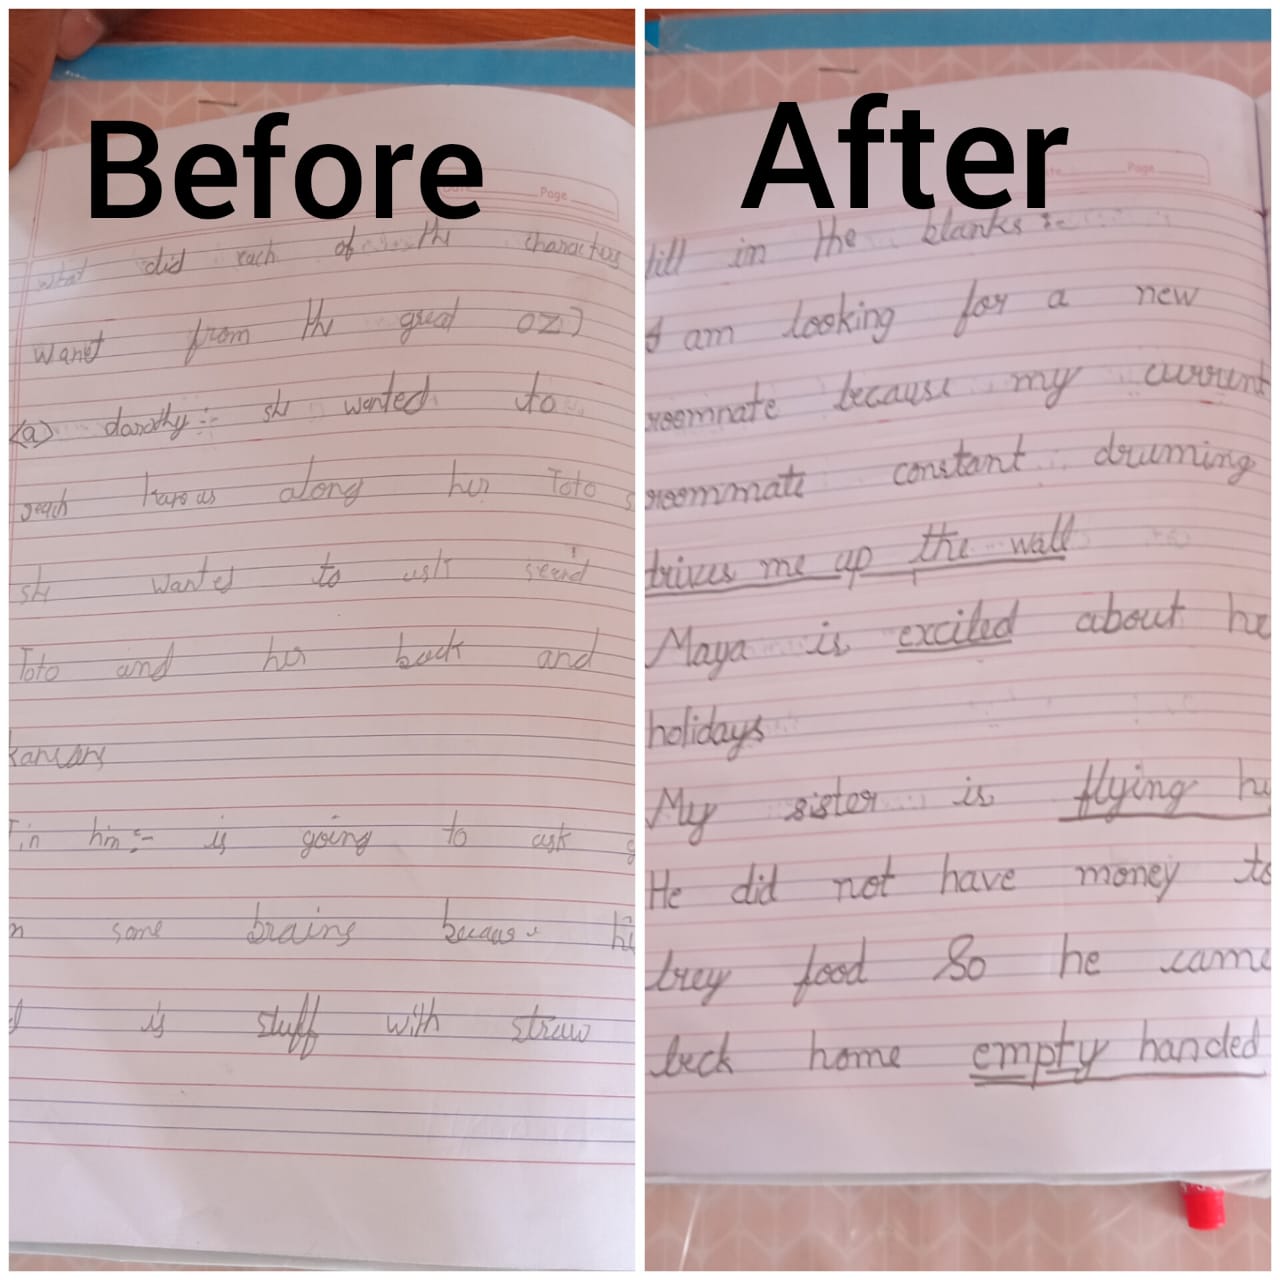 Before
Page
what did each of the characters
want from the great oz?
(a) darothy:- she wanted to
reach kansas along her Toto
she wanted to ask send
Toto and her back and
kansans
Tin him:- is going to ask
some brains because hi
is stuff with straw
After
Page
fill in the blanks :-
I am looking for a new
roommate because my current
roommate constant druming
drives me up the wall
Maya is excited about he
holidays
My sister is flying hi
He did not have money to
brey food So he came
beck home empty handed